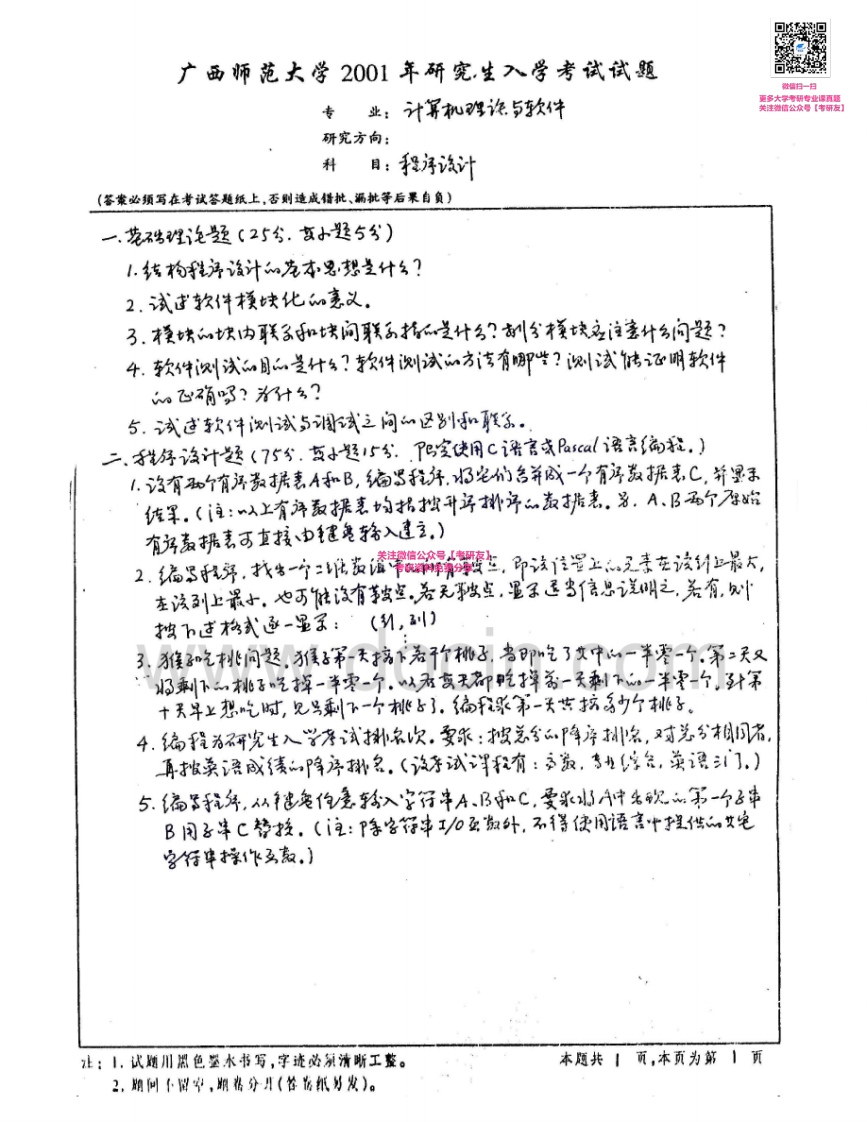 微信扫一扫
更多大学考研专业课真题
关注微信公众号【考研友】
广西师范大学2001年研究生入学考试试题
专 业：计算机理论与软件
研究方向：
科 目：程序设计
(答案必须写在考试答题纸上,否则造成错批、漏批等后果自负)
一、基础理论题(25分.每小题5分)
1.结构程序设计的基本思想是什么?
2.试述软件模块化的意义。
3.模块的块内联系和块间联系指的是什么?划分模块应注意什么问题?
4.软件测试的目的是什么?软件测试的方法有哪些?测试能证明软件
的正确吗?为什么?
5.试述软件测试与调试之间的区别和联系。
二、程序设计题(75分.每小题15分.限定使用C语言或Pascal语言编程。)
1.设有两个有序数据表A和B,编写程序,将它们合并成一个有序数据表C,并显示
结果。(注:以上有序数据表均指按升序排序的数据表。另,A、B两个原始
有序数据表可直接由键盘输入建立。)
关注微信公众号【考研友】
考研资料免费分享
2.编写程序,找出一个二维数组中的所有鞍点,即该位置上的元素在该行上最大,
在该列上最小。也可能没有鞍点。若无鞍点,显示适当信息说明之,若有,则
按下述格式逐一显示: (行,列)
www.docin.com
3.猴子吃桃问题。猴子第一天摘下若干个桃子,当即吃了其中的一半零一个。第二天又
将剩下的桃子吃掉一半零一个。以后每天都吃掉前一天剩下的一半零一个。到第
十天早上想吃时,见只剩下一个桃子了。编程求第一天共摘多少个桃子。
4.编程为研究生入学考试排名次。要求:按总分的降序排名,对总分相同者,
再按英语成绩的降序排名。(设考试课程有:高数,专业综合,英语三门。)
5.编写程序,从键盘任意输入字符串A、B和C,要求将A中出现的第一个子串
B用子串C替换。(注:除字符串I/O函数外,不得使用语言中提供的其它
字符串操作函数。)
注：1.试题用黑色墨水书写,字迹必须清晰工整。
本题共 1 页,本页为第 1 页
2.